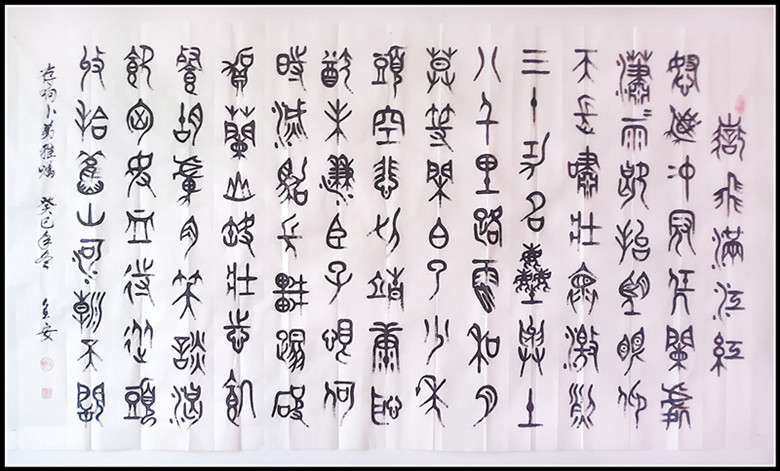 嶽飛滿江紅
怒髮沖冠凭闌處
瀟雨歇抬望眼仰
天長嘯壯懷激烈
三十功名塵與土
八千里路雲和月
莫等閑白了少年
頭空悲切靖康恥
猷未雪臣子恨何
時滅駕長車踏破
賀蘭山缺壯志飢
餐胡虜肉笑談渴
飲匈奴血待從頭
收拾舊山河朝天闕
小弟雅囑 癸巳年冬 安